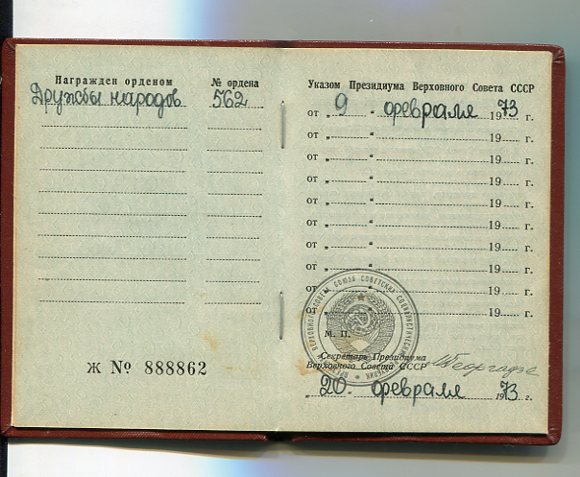 Награжден орденом
№ ордена
Дружбы народов
562
Ж № 888862
Указом Президиума Верховного Совета СССР
от „ 9 " февраля 1973 г.
от „ " 19 г.
от „ " 19 г.
от „ " 19 г.
от „ " 19 г.
от „ " 19 г.
от „ " 19 г.
от „ " 19 г.
от „ " 19 г.
от „ " 19 г.
М. П.
Секретарь Президиума
Верховного Совета СССР
МГеоргадзе
„ 20 " февраля 1973 г.